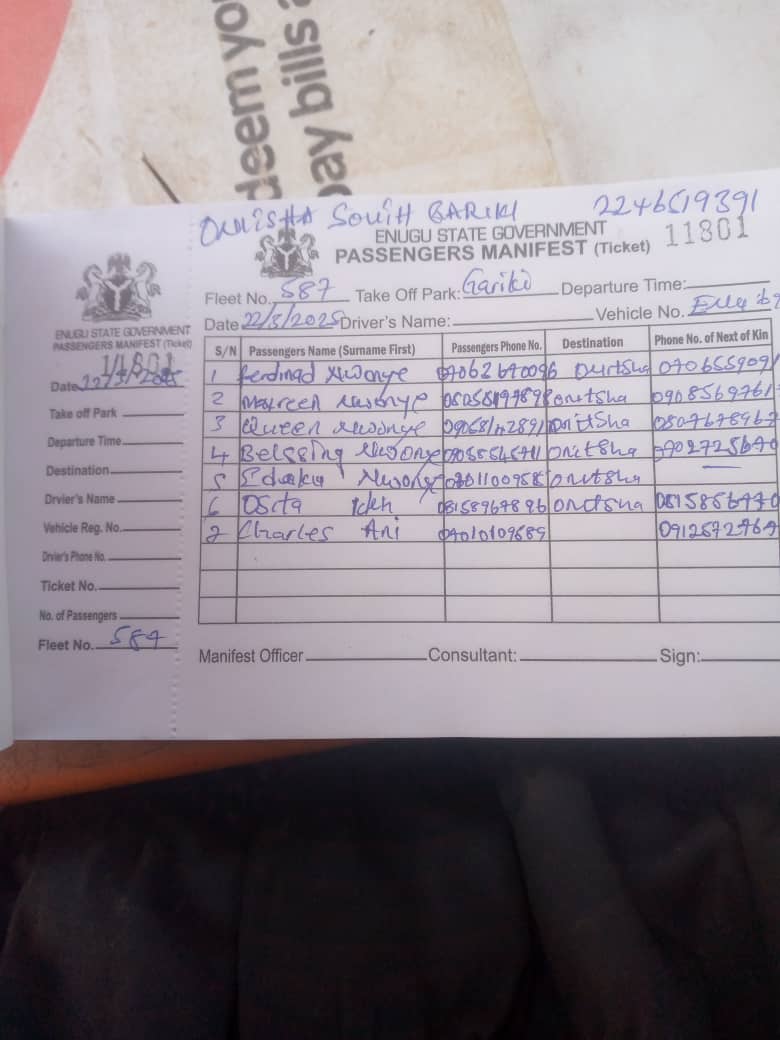 deem yo
pay bills a
ONISHA SOUTH GARIKI 2246519391
ENUGU STATE GOVERNMENT
PASSENGERS MANIFEST (Ticket) 11801
Fleet No. 587 Take Off Park: Gariki Departure Time:
Date 22/3/2025 Driver's Name: Vehicle No.
S/N Passengers Name (Surname First) Passengers Phone No. Destination Phone No. of Next of Kin
1 Ferdinad Nwonye 07062670096 Onitsha 070655909
2 Maureen Nwonye Onitsha 0908569761
3 Queen Nwonye Onitsha 0807678967
4 Belssing Nwonye Onitsha
5 Nwonye Onitsha
6 Osita 08158967896 Onitsha
7 Charles Ani 07010109689
Manifest Officer Consultant: Sign:
ENUGU STATE GOVERNMENT
PASSENGERS MANIFEST (Ticket)
11801
Date 22/3/2025
Take off Park
Departure Time
Destination
Drvier's Name
Vehicle Reg. No.
Drvier's Phone No.
Ticket No.
No. of Passengers
Fleet No. 587